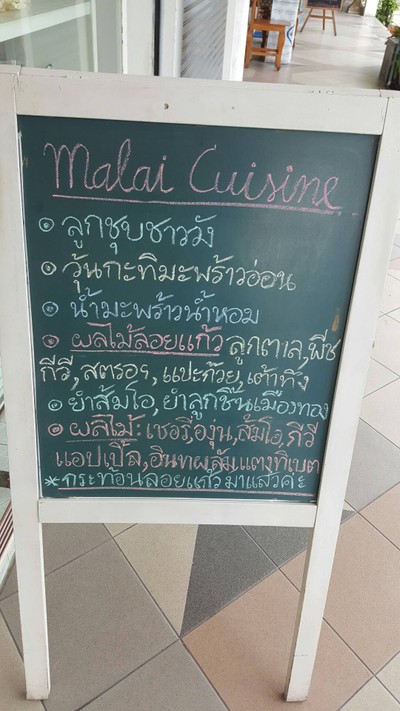 Malai Cuisine
• ลูกชุบชาววัง
• วุ้นกะทิมะพร้าวอ่อน
• น้ำมะพร้าวน้ำหอม
• ผลไม้ลอยแก้ว ลูกตาล, พีช
กีวี, สตรอฯ, แปะก๊วย, เต้าทึง
• ยำส้มโอ, ยำลูกชิ้นเมืองทอง
• ผลไม้: เชอรี่, องุ่น, ส้มโอ, กีวี
แอปเปิ้ล, อินทผลัม, แตงทิเบต
*กระท้อนลอยแก้วมาแล้วค่ะ